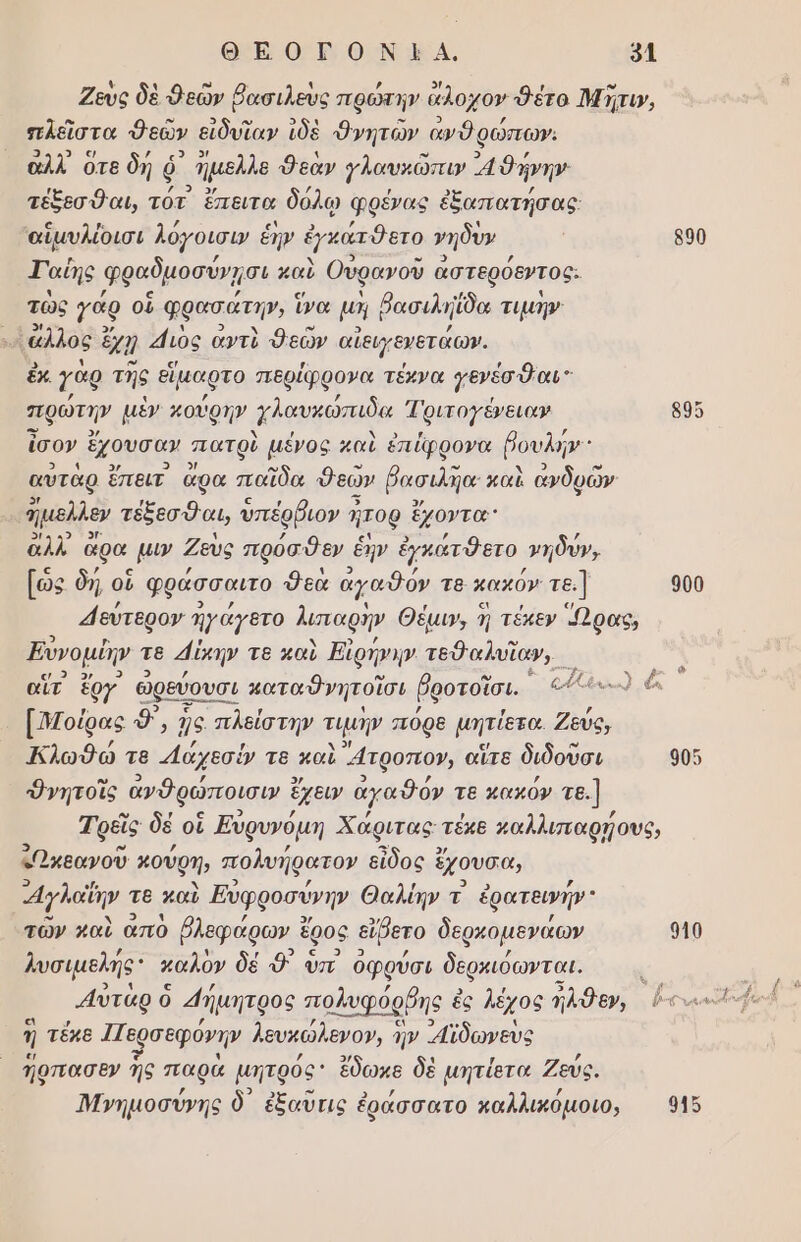 ΘΕΟΓΟΝΙΑ. 31
Ζεὺς δὲ θεῶν βασιλεὺς πρώτην ἄλοχον θέτο Μῆτιν,
πλεῖστα θεῶν εἰδυῖαν ἰδὲ θνητῶν ἀνθρώπων.
ἀλλ᾽ ὅτε δή ῥ᾽ ἤμελλε θεὰν γλαυκῶπιν Ἀθήνην
τέξεσθαι, τότ᾽ ἔπειτα δόλῳ φρένας ἐξαπατήσας
αἱμυλίοισι λόγοισιν ἑὴν ἐγκάτθετο νηδὺν 890
Γαίης φραδμοσύνῃσι καὶ Οὐρανοῦ ἀστερόεντος.
τὼς γάρ οἱ φρασάτην, ἵνα μὴ βασιληΐδα τιμὴν
ἄλλος ἔχῃ Διὸς ἀντὶ θεῶν αἰειγενετάων.
ἐκ γὰρ τῆς εἵμαρτο περίφρονα τέκνα γενέσθαι·
πρώτην μὲν κούρην γλαυκώπιδα Τριτογένειαν 895
ἶσον ἔχουσαν πατρὶ μένος καὶ ἐπίφρονα βουλήν·
αὐτὰρ ἔπειτ᾽ ἄρα παῖδα θεῶν βασιλῆα καὶ ἀνδρῶν
ἤμελλεν τέξεσθαι, ὑπέρβιον ἦτορ ἔχοντα·
ἀλλ᾽ ἄρα μιν Ζεὺς πρόσθεν ἑὴν ἐγκάτθετο νηδύν,
[ὡς δή οἱ φράσσαιτο θεὰ ἀγαθόν τε κακόν τε.] 900
Δεύτερον ἠγάγετο λιπαρὴν Θέμιν, ἣ τέκεν Ὥρας,
Εὐνομίην τε Δίκην τε καὶ Εἰρήνην τεθαλυῖαν,
αἵτ᾽ ἔργ᾽ ὠρεύουσι καταθνητοῖσι βροτοῖσι.
[Μοίρας θ᾽, ᾗς πλείστην τιμὴν πόρε μητίετα Ζεύς,
Κλωθώ τε Λάχεσίν τε καὶ Ἄτροπον, αἵτε διδοῦσι 905
θνητοῖς ἀνθρώποισιν ἔχειν ἀγαθόν τε κακόν τε.]
Τρεῖς δέ οἱ Εὐρυνόμη Χάριτας τέκε καλλιπαρῄους,
Ὠκεανοῦ κούρη, πολυήρατον εἶδος ἔχουσα,
Ἀγλαΐην τε καὶ Εὐφροσύνην Θαλίην τ᾽ ἐρατεινήν·
τῶν καὶ ἀπὸ βλεφάρων ἔρος εἴβετο δερκομενάων 910
λυσιμελής· καλὸν δέ θ᾽ ὑπ᾽ ὀφρύσι δερκιόωνται.
Αὐτὰρ ὁ Δήμητρος πολυφόρβης ἐς λέχος ἦλθεν,
ἣ τέκε Περσεφόνην λευκώλενον, ἣν Ἀϊδωνεὺς
ἥρπασεν ἧς παρὰ μητρός· ἔδωκε δὲ μητίετα Ζεύς.
Μνημοσύνης δ᾽ ἐξαῦτις ἐράσσατο καλλικόμοιο, 915